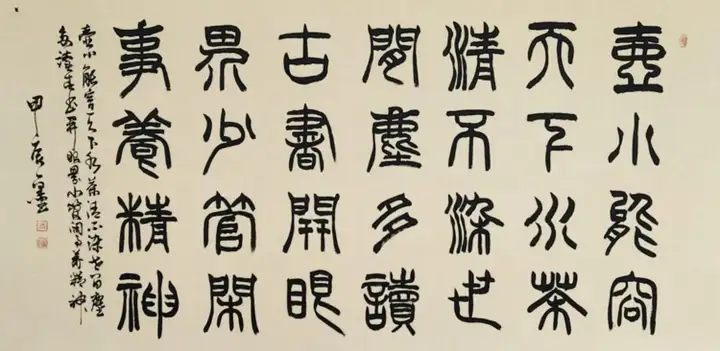 壺小能容
天下水茶
清不染世
間塵多讀
古書開眼
界少管閑
事養精神
壺小能容天下水茶清不染世間塵
多讀古書開眼界少管闲事养精神
甲辰